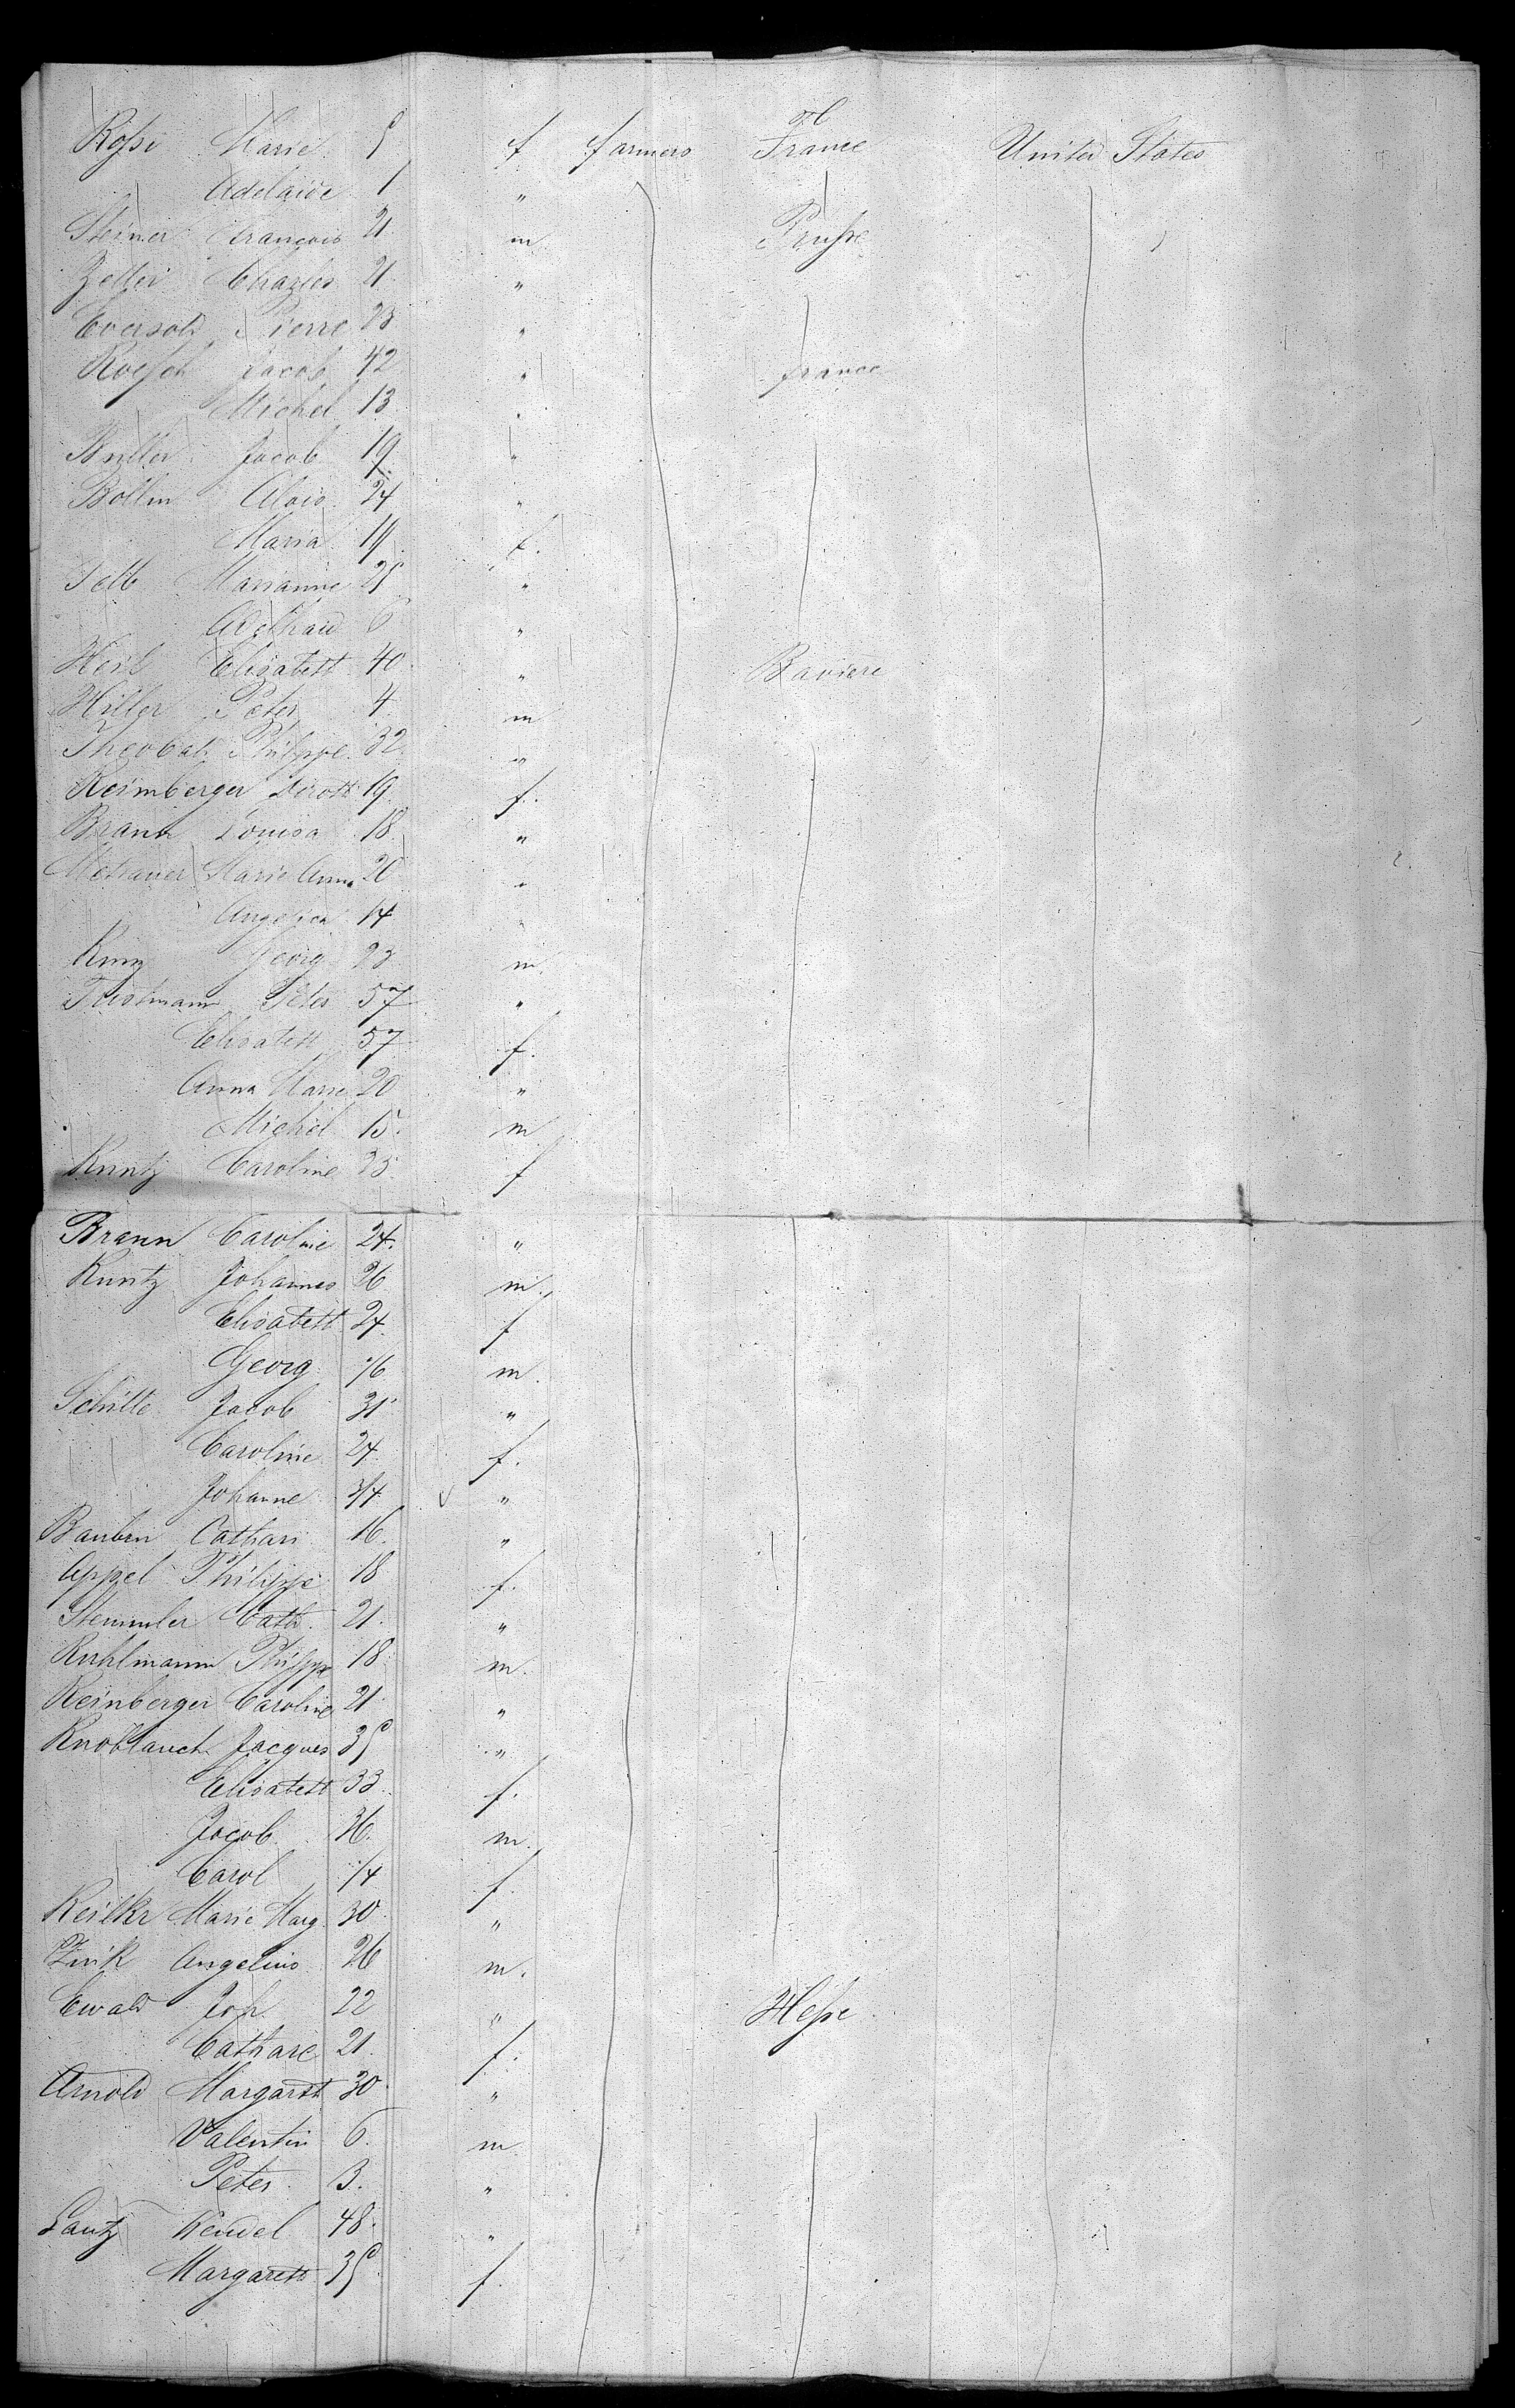 Rossi Marie 5 f farmers France United States
Adelaide 1 "
Steiner François 21 m Prusse
Zeller Charles 21 "
Eversold Pierre 23 "
Roesch Jacob 42 " france
Michel 13 "
Butler Jacob 19 "
Bollin Alois 24 "
Maria 19 f.
Marianne 25 "
6 "
Elisabett 40 " Baviere
Hiller Peter 4 m
Theobald Philippe 32 "
Reimberger Dorott 19 f.
Braun Louisa 18 "
Marie Anna 20 "
Angelica 14 "
Kunz Georg 23 m.
Peter 57 "
Elisabett 57 f.
Anna Marie 20 "
Michel 15. m
Kuntz Caroline 25 f
Braun Caroline 24. "
Kuntz Johannes 26 m.
Elisabett 24. f
Georg m.
Schütte Jacob 31 "
Caroline 24. f.
Johanne 3/4 "
Cathari 16. "
Appel Philippe 18 f.
Stemmler Cath. 21. "
Kuhlmann Philippe 18 m.
Reinberger Caroline 21. "
Knoblauch Jacques 35 "
Elisabett 33. f.
Jacob 36. m.
Carol 1/4 f.
Marie Marg. 30 "
Zink Angelius 26 m.
Ewald Joh 22 " Hesse
Cathare 21. f.
Arnold Margarett 30 "
Valentin 6. m
Peter 3. "
Lautz 48. "
Margarett 35 f.